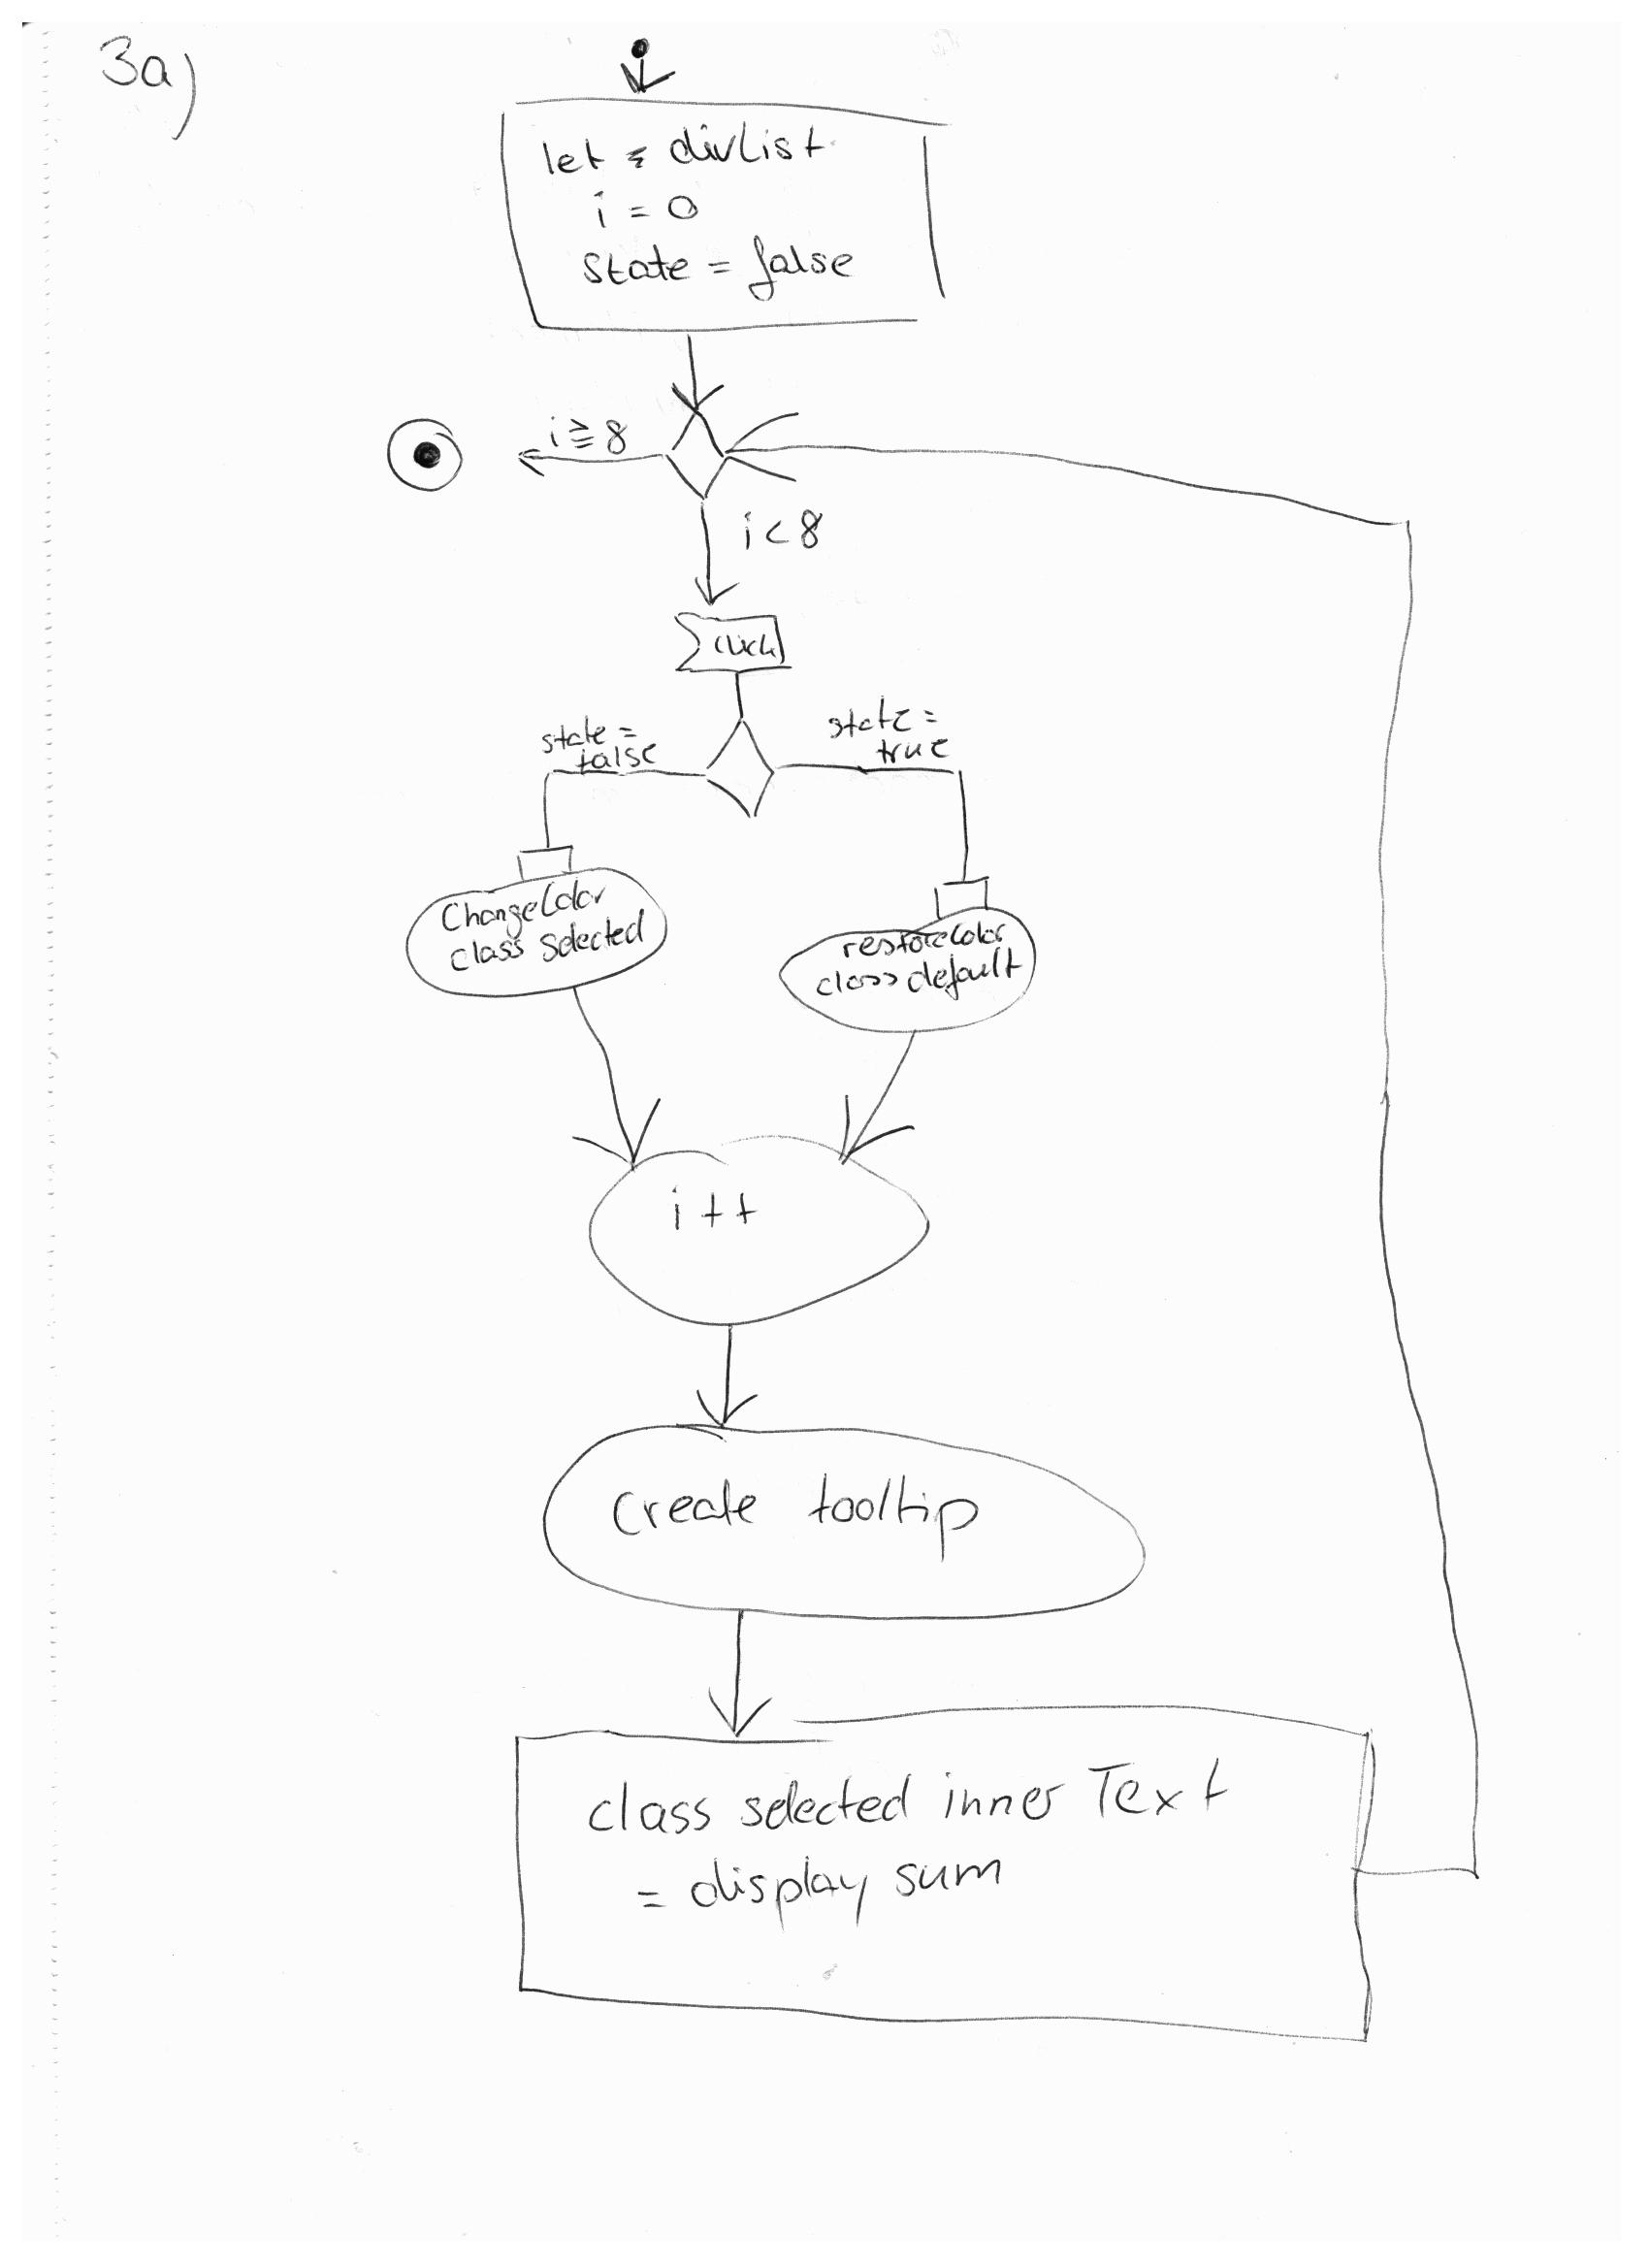 3a)
let divList
i = 0
state = false
i ≧ 8
i < 8
click
state =
false
state =
true
ChangeColor
class selected
restoreColor
class default
i++
create tooltip
class selected inner Text
= display sum